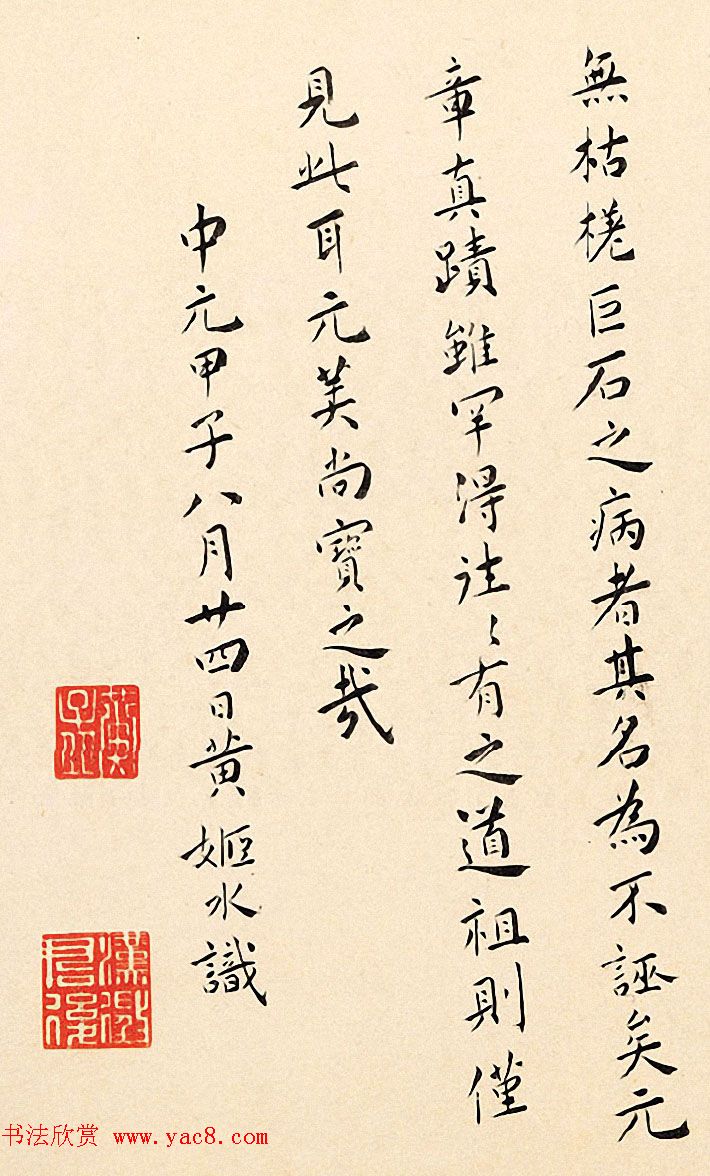 無枯槎巨石之病者其名為不誣矣元
章真蹟雖罕得往〻有之道祖則僅
見此耳元美尚寶之哉
中元甲子八月廿四日黃姬水識
漢徵君後
书法欣赏 www.yac8.com